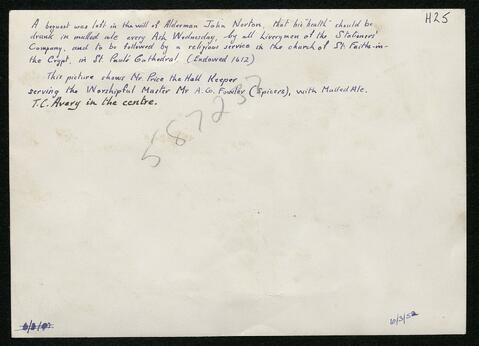 H25
A bequest was left in the will of Alderman John Norton, that his "health" should be
drunk in mulled ale every Ash Wednesday, by all Liverymen of the Stationers'
Company, and to be followed by a religious service in the church of St. Faith-in-
the Crypt, in St. Paul's Cathedral. (Endowed 1612)
This picture shows Mr. Price the Hall Keeper
serving the Worshipful Master Mr A.G. Fowler (Spicers), with Mulled Ale.
T.C. Avery in the centre.
587257
10/3/52